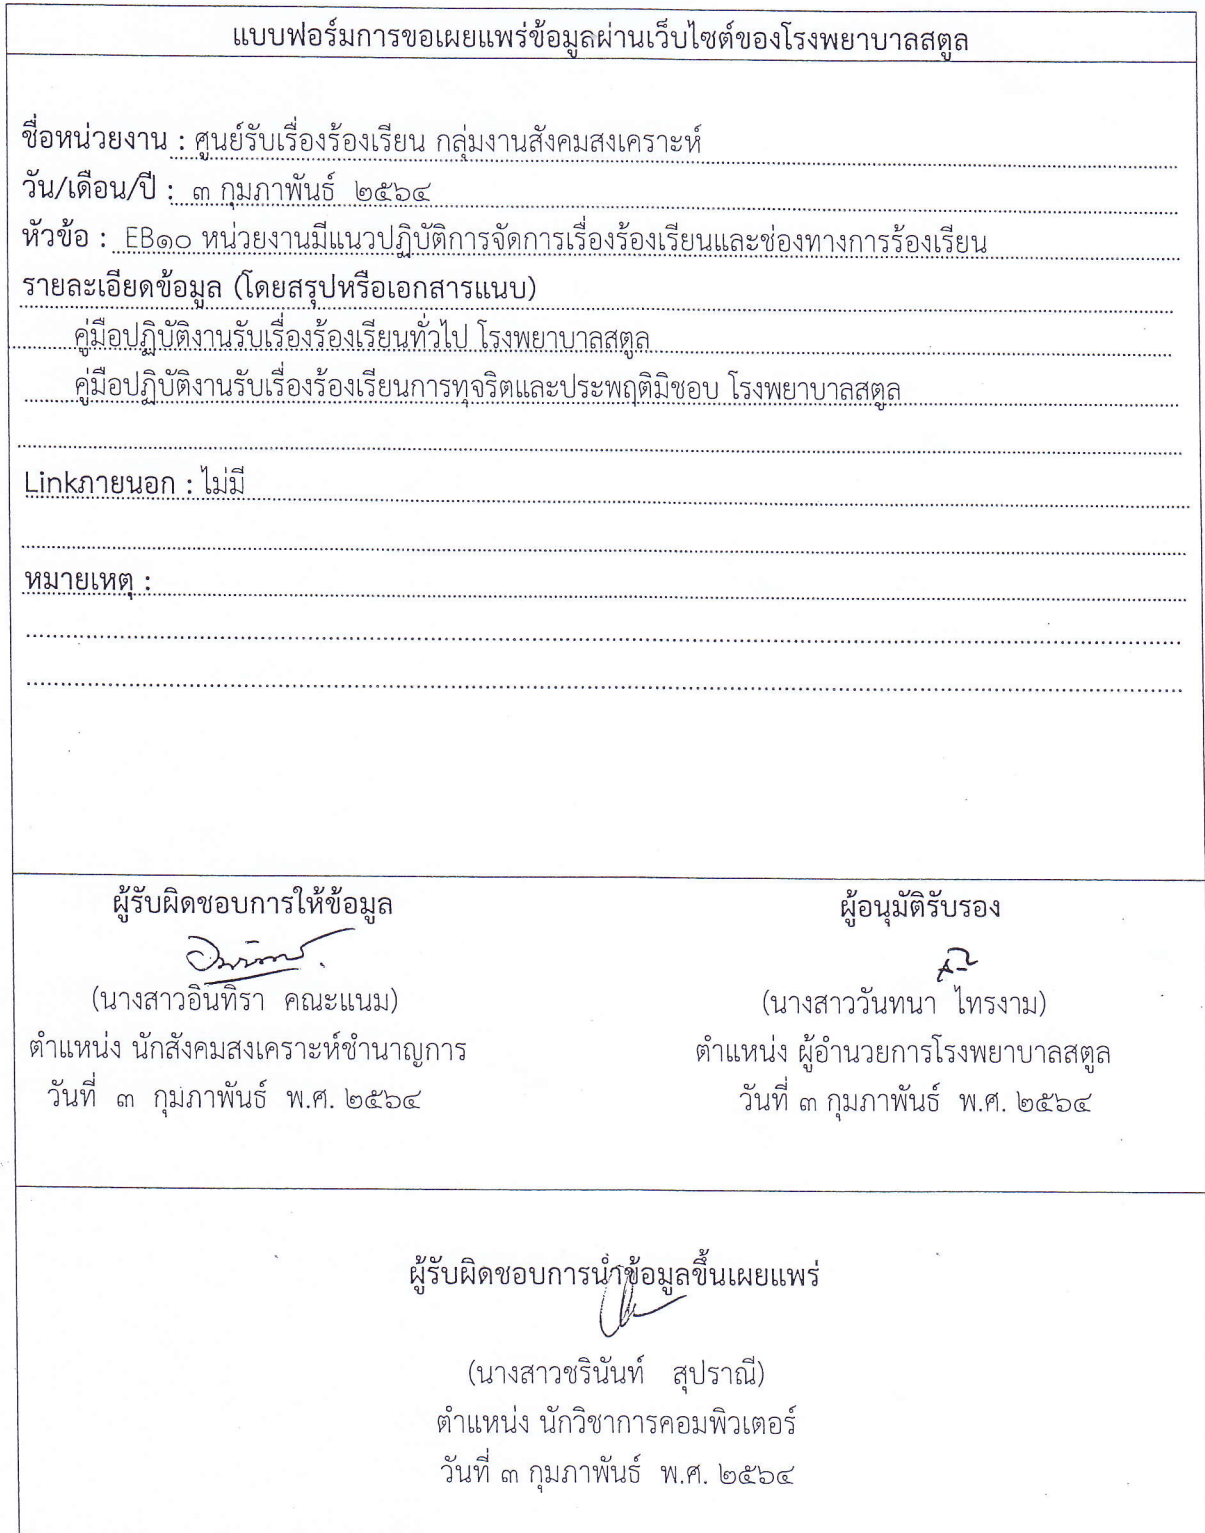 แบบฟอร์มการขอเผยแพร่ข้อมูลผ่านเว็บไซต์ของโรงพยาบาลสตูล
ชื่อหน่วยงาน : ศูนย์รับเรื่องร้องเรียน กลุ่มงานสังคมสงเคราะห์
วัน/เดือน/ปี : ๓ กุมภาพันธ์ ๒๕๖๔
หัวข้อ : EB๑๐ หน่วยงานมีแนวปฏิบัติการจัดการเรื่องร้องเรียนและช่องทางการร้องเรียน
รายละเอียดข้อมูล (โดยสรุปหรือเอกสารแนบ)
คู่มือปฏิบัติงานรับเรื่องร้องเรียนทั่วไป โรงพยาบาลสตูล
คู่มือปฏิบัติงานรับเรื่องร้องเรียนการทุจริตและประพฤติมิชอบ โรงพยาบาลสตูล
Linkภายนอก : ไม่มี
หมายเหตุ :
ผู้รับผิดชอบการให้ข้อมูล
(นางสาวอินทิรา คณะแนม)
ตำแหน่ง นักสังคมสงเคราะห์ชำนาญการ
วันที่ ๓ กุมภาพันธ์ พ.ศ. ๒๕๖๔
ผู้อนุมัติรับรอง
(นางสาววันทนา ไทรงาม)
ตำแหน่ง ผู้อำนวยการโรงพยาบาลสตูล
วันที่ ๓ กุมภาพันธ์ พ.ศ. ๒๕๖๔
ผู้รับผิดชอบการนำข้อมูลขึ้นเผยแพร่
(นางสาวชรินันท์ สุปราณี)
ตำแหน่ง นักวิชาการคอมพิวเตอร์
วันที่ ๓ กุมภาพันธ์ พ.ศ. ๒๕๖๔